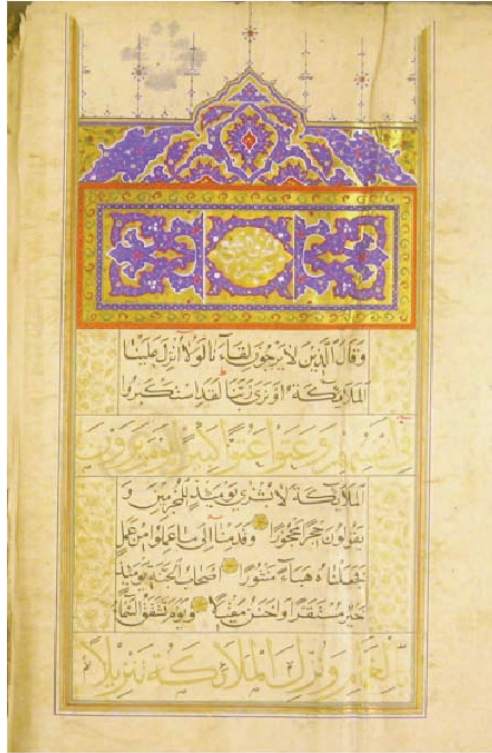 وَقَالَ الَّذِينَ لَا يَرْجُونَ لِقَاءَنَا لَوْلَا أُنْزِلَ عَلَيْنَا
الْمَلَائِكَةُ أَوْ نَرَى رَبَّنَا لَقَدِ اسْتَكْبَرُوا
فِي أَنْفُسِهِمْ وَعَتَوْا عُتُوًّا كَبِيرًا يَوْمَ يَرَوْنَ
الْمَلَائِكَةَ لَا بُشْرَى يَوْمَئِذٍ لِلْمُجْرِمِينَ وَ
يَقُولُونَ حِجْرًا مَحْجُورًا وَقَدِمْنَا إِلَى مَا عَمِلُوا مِنْ عَمَلٍ
فَجَعَلْنَاهُ هَبَاءً مَنْثُورًا أَصْحَابُ الْجَنَّةِ يَوْمَئِذٍ
خَيْرٌ مُسْتَقَرًّا وَأَحْسَنُ مَقِيلًا وَيَوْمَ تَشَقَّقُ السَّمَاءُ
بِالْغَمَامِ وَنُزِّلَ الْمَلَائِكَةُ تَنْزِيلًا